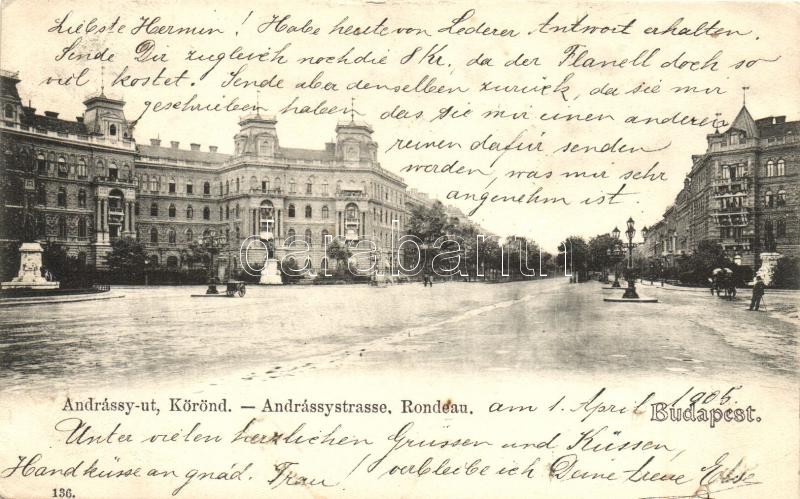 Liebste Hermin! Habe heute von Lederer Antwort erhalten.
Sende Dir zugleich noch die 8 Kr, da der Flanell doch so
viel kostet. Sende aber denselben zurück, da sie mir
geschrieben haben, das sie mir einen anderen
reinen dafür senden
werden, was mir sehr
angenehm ist.
darabanth
Andrássy-ut, Körönd. — Andrássystrasse, Rondeau. am 1. April 1905.
Budapest.
Unter vielen herzlichen Grüssen und Küssen,
Handküsse an gnäd. Frau! verbleibe ich Deine treue Else
136.